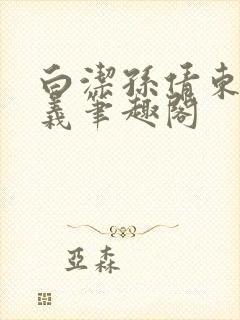 白潔孫倩東
義筆趣閣
亞森